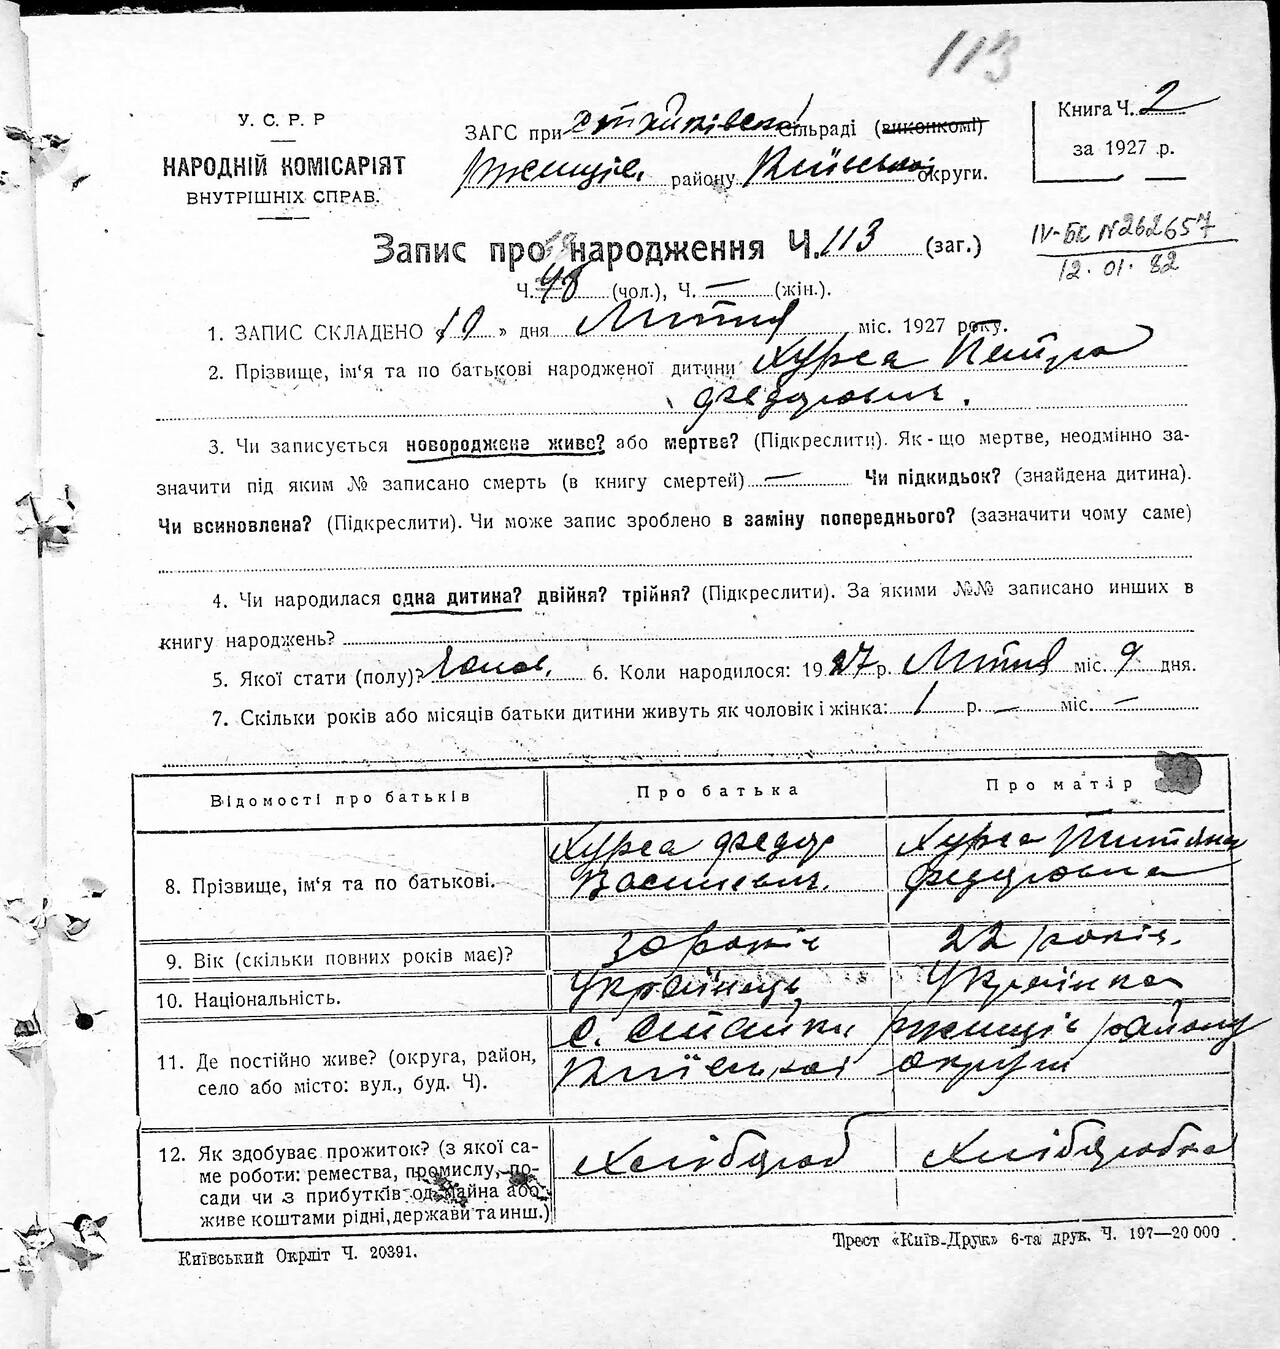 113
У. С. Р. Р
НАРОДНІЙ КОМІСАРІЯТ
ВНУТРІШНІХ СПРАВ.
ЗАГС при Стайківській сільраді (виконкомі)
Ржищів. району Київської округи.
Книга Ч. 2
за 1927 р.
Запис про народження Ч. 113 (заг.)
Ч. 48 (чол.), Ч. — (жін.).
IV-БК N 262657
12.01.82
1. ЗАПИС СКЛАДЕНО « 10 » дня Лютня міс. 1927 року.
2. Прізвище, ім'я та по батькові народженої дитини Хурса Петро
Федорович.
3. Чи записується новороджене живе? або мертве? (Підкреслити). Як-що мертве, неодмінно за-
значити під яким № записано смерть (в книгу смертей) — Чи підкидьок? (знайдена дитина).
Чи всиновлена? (Підкреслити). Чи може запис зроблено в заміну попереднього? (зазначити чому саме)
4. Чи народилася одна дитина? двійня? трійня? (Підкреслити). За якими №№ записано инших в
книгу народжень?
5. Якої стати (полу)? 6. Коли народилося: 1927 р. Лютня міс. 9 дня.
7. Скільки років або місяців батьки дитини живуть як чоловік і жінка: 1 р. — міс. —
Відомості про батьків
Про батька
Про матір
8. Прізвище, ім'я та по батькові.
Хурса Федор
Василевич.
Хурса Титяна
Федоровна
9. Вік (скільки повних років має)?
30 років
22 років.
10. Національність.
Українець
Українка
11. Де постійно живе? (округа, район,
село або місто: вул., буд. Ч).
С. Стайки Ржищів району
Київської округи
12. Як здобуває прожиток? (з якої са-
ме роботи: ремества, промислу, по-
сади чи з прибутків од майна або
живе коштами рідні, держави та инш.)
Хлібороб
Хліборобка
Київський Окрліт Ч. 20391.
Трест «Київ-Друк» 6-та друк. Ч. 197—20 000.